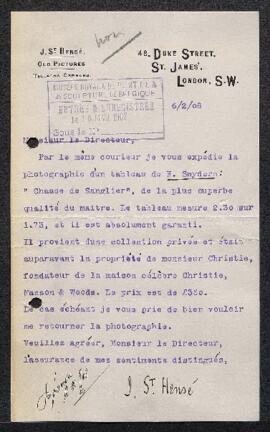 J. St Hensé.
Old Pictures
non
48. Duke Street,
St. James',
London, S.W.
6/2/08
Monsieur le Directeur,
Par le même courier je vous expédie la
photographie d'un tableau de F. Snyders:
" Chasse de Sanglier", de la plus superbe
qualité du maitre. Le tableau mesure 2.30 sur
1.73, et il est absolument garanti.
Il provient d'une collection privée et était
auparavant la propriété de monsieur Christie,
fondateur de la maison célèbre Christie,
Manson & Woods. Le prix est de £350.
Le cas échéant je vous prie de bien vouloir
me retourner la photographie.
Veuillez agréer, Monsieur le Directeur,
l'assurance de mes sentiments distingués,
J. St Hensé